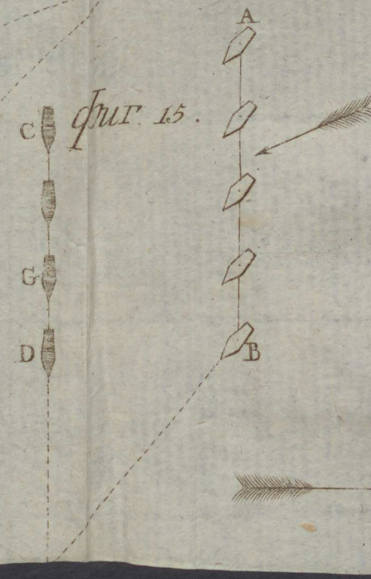 A
C фиг. 15.
G
D
B